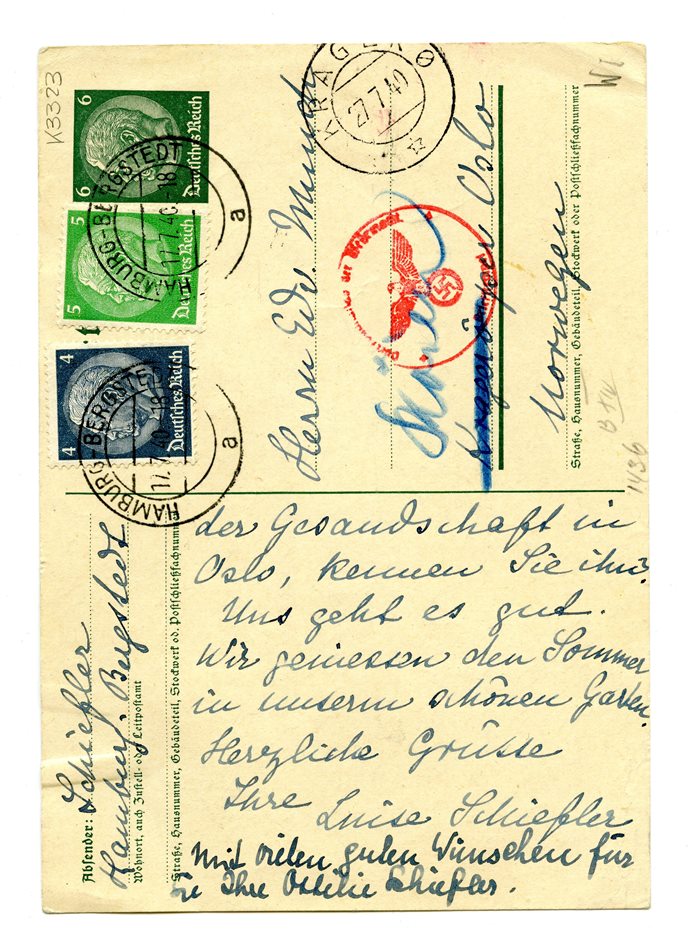 K3323
6 6
Deutsches Reich
5 5
Deutsches Reich
4 4
Deutsches Reich
HAMBURG-BERGSTEDT
17.7.40.18
a
HAMBURG-BERGSTEDT
17.7.40.18
a
KRAGERØ
27.7.40
Herrn Edv. Munch
Kragerö per Oslo
Norwegen
Straße, Hausnummer, Gebäudeteil, Stockwerk oder Postschließfachnummer
1436
Absender: Schiefler
Hamburg-Bergstedt
Wohnort, auch Zustell- oder Leitpostamt
Straße, Hausnummer, Gebäudeteil, Stockwerk od. Postschließfachnummer
der Gesandschaft in
Oslo, kennen Sie ihn?
Uns geht es gut.
Wir geniessen den Sommer
in unserm schönen Garten.
Herzliche Grüsse
Ihre Luise Schiefler
Mit vielen guten Wünschen für
Sie Ihre Ottilie Schiefler.